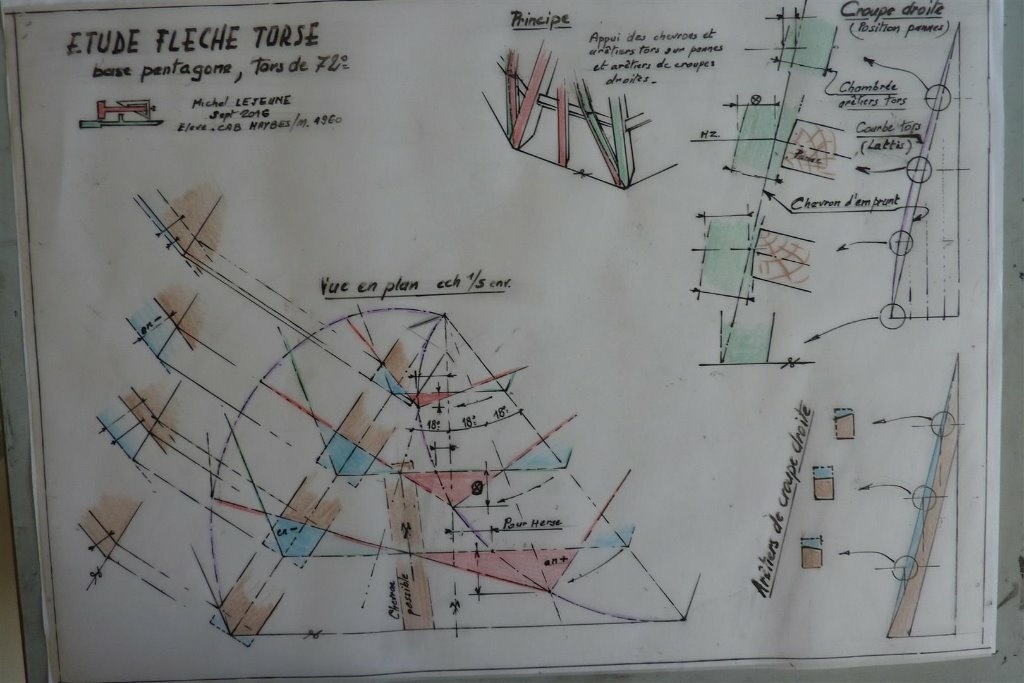 ETUDE FLECHE TORSE
base pentagone, tors de 72°
Michel LEJEUNE
Sept 2016
Principe
Appui des chevrons et
arêtiers tors sur pannes
et arêtiers de croupes
droites.
Croupe droite
(Position pannes)
Chambrée
arêtiers tors
Courbe tors
(Lattis)
HZ.
Panne
Chevron d'emprunt
Vue en plan ech 1/5 env.
en -
18° 18° 18°
Pour Herse
en -
en +
Chevron
possible
Arêtiers de croupe droite